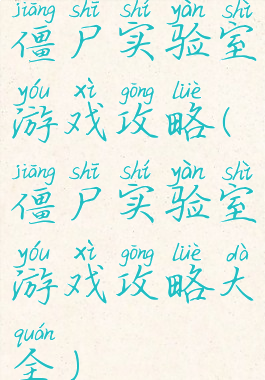 jiāng shī shí yàn shì
僵尸实验室
yóu xì gōng lüè
游戏攻略(
jiāng shī shí yàn shì
僵尸实验室
yóu xì gōng lüè dà
游戏攻略大
quán
全)